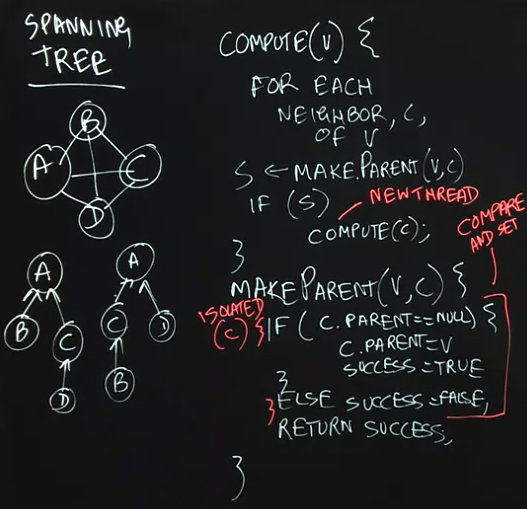 SPANNING
TREE
B
A
C
D
A
B
C
D
A
C
D
B
COMPUTE(V) {
FOR EACH
NEIGHBOR, C,
OF V
S ← MAKE.PARENT(V,C)
IF (S)
NEW THREAD
COMPUTE(C);
}
COMPARE
AND SET
MAKEPARENT(V,C) {
ISOLATED
(C) { IF ( C.PARENT==NULL) {
C.PARENT=V
SUCCESS=TRUE
}
} ELSE SUCCESS=FALSE;
RETURN SUCCESS;
}